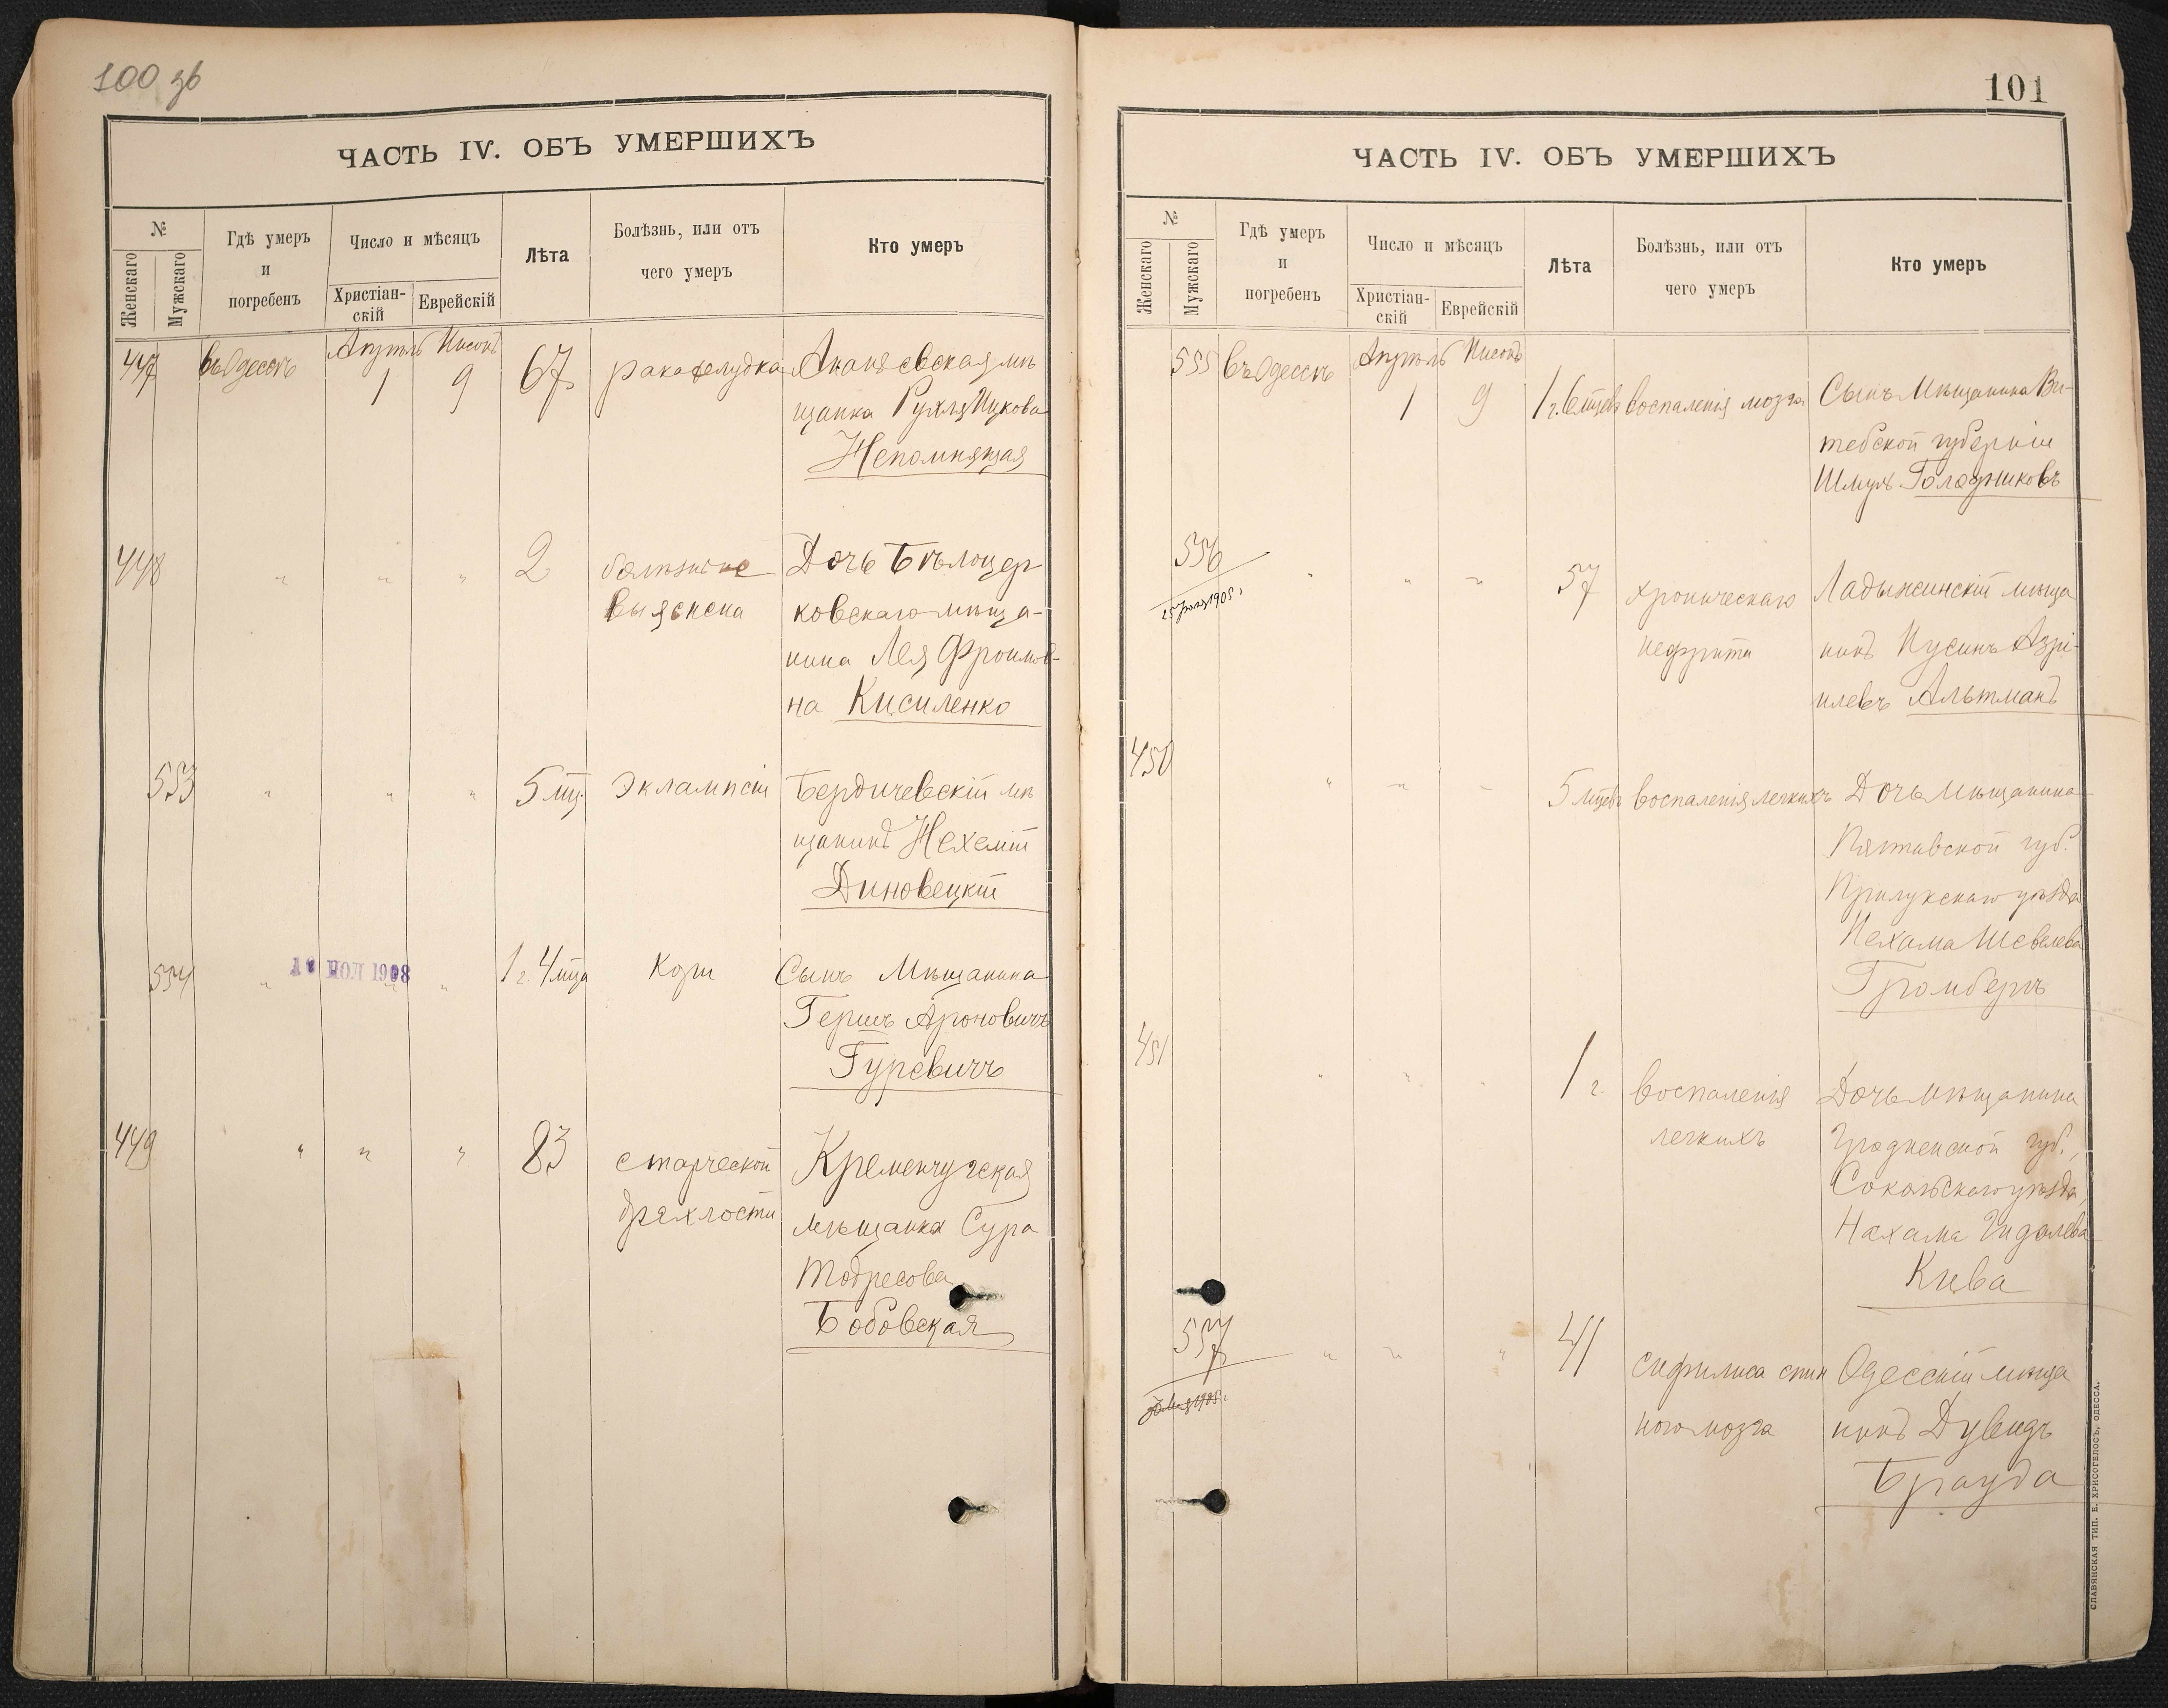 100 зв
ЧАСТЬ IV. ОБЪ УМЕРШИХЪ
№
Женскаго
Мужскаго
Гдѣ умеръ
и
погребенъ
Число и мѣсяцъ
Христіан-
скій
Еврейскій
Лѣта
Болѣзнь, или отъ
чего умеръ
Кто умеръ
447 въ Одессѣ Апрѣль Нисонъ
1 9 67 рака желудка Ананьевская мѣ
щанка Рухля Ицкова
Непомнящая
448 " " " 2 болѣзнь не Дочь Бѣлоцер
выяснена ковскаго мѣща-
нина Лея Фроимов-
на Кисиленко
553 " " " 5 мц. Эклампсіи Бердичевскій мѣ
щанинъ Нехемій
Диновецкій
554 " 10 ИЮЛ 1908 " " 1 г. 4 мца Кори Сынъ Мѣщанина
Гершъ Ароновичъ
Гуревичъ
449 " " " 83 старческой Кременчугская
дряхлости мѣщанка Сура
Тодресова
Бобовская
101
ЧАСТЬ IV. ОБЪ УМЕРШИХЪ
№
Женскаго
Мужскаго
Гдѣ умеръ
и
погребенъ
Число и мѣсяцъ
Христіан-
скій
Еврейскій
Лѣта
Болѣзнь, или отъ
чего умеръ
Кто умеръ
555 въ Одессѣ Апрѣль Нисонъ
1 9 1 г. 6 мцевъ воспаленія мозга Сынъ Мѣщанина Ви-
тебской губерніи
Шмуль Голодниковъ
556 " " " 57 хроническаго Ладыжинскій мѣща
1905 г.
нефрита нинъ Нусинъ Азрі-
илевъ Альтманъ
450 " " " 5 мцевъ воспаленія легкихъ Дочь Мѣщанина
Полтавской губ.
Прилукскаго уѣзда
Нехама Шевелева
Громбергъ
451 " " " 1 г. воспаленія Дочь мѣщанина
легкихъ Гродненской губ.,
Сокольскаго уѣзда
Нахама Гидалева
Кива
557 " " " 41 сифилиса спин Одесскій мѣща
1905 г.
ного мозга нинъ Дувидъ
Брауда
СЛАВЯНСКАЯ ТИП. Е. ХРИСОГЕЛОСЪ, ОДЕССА.